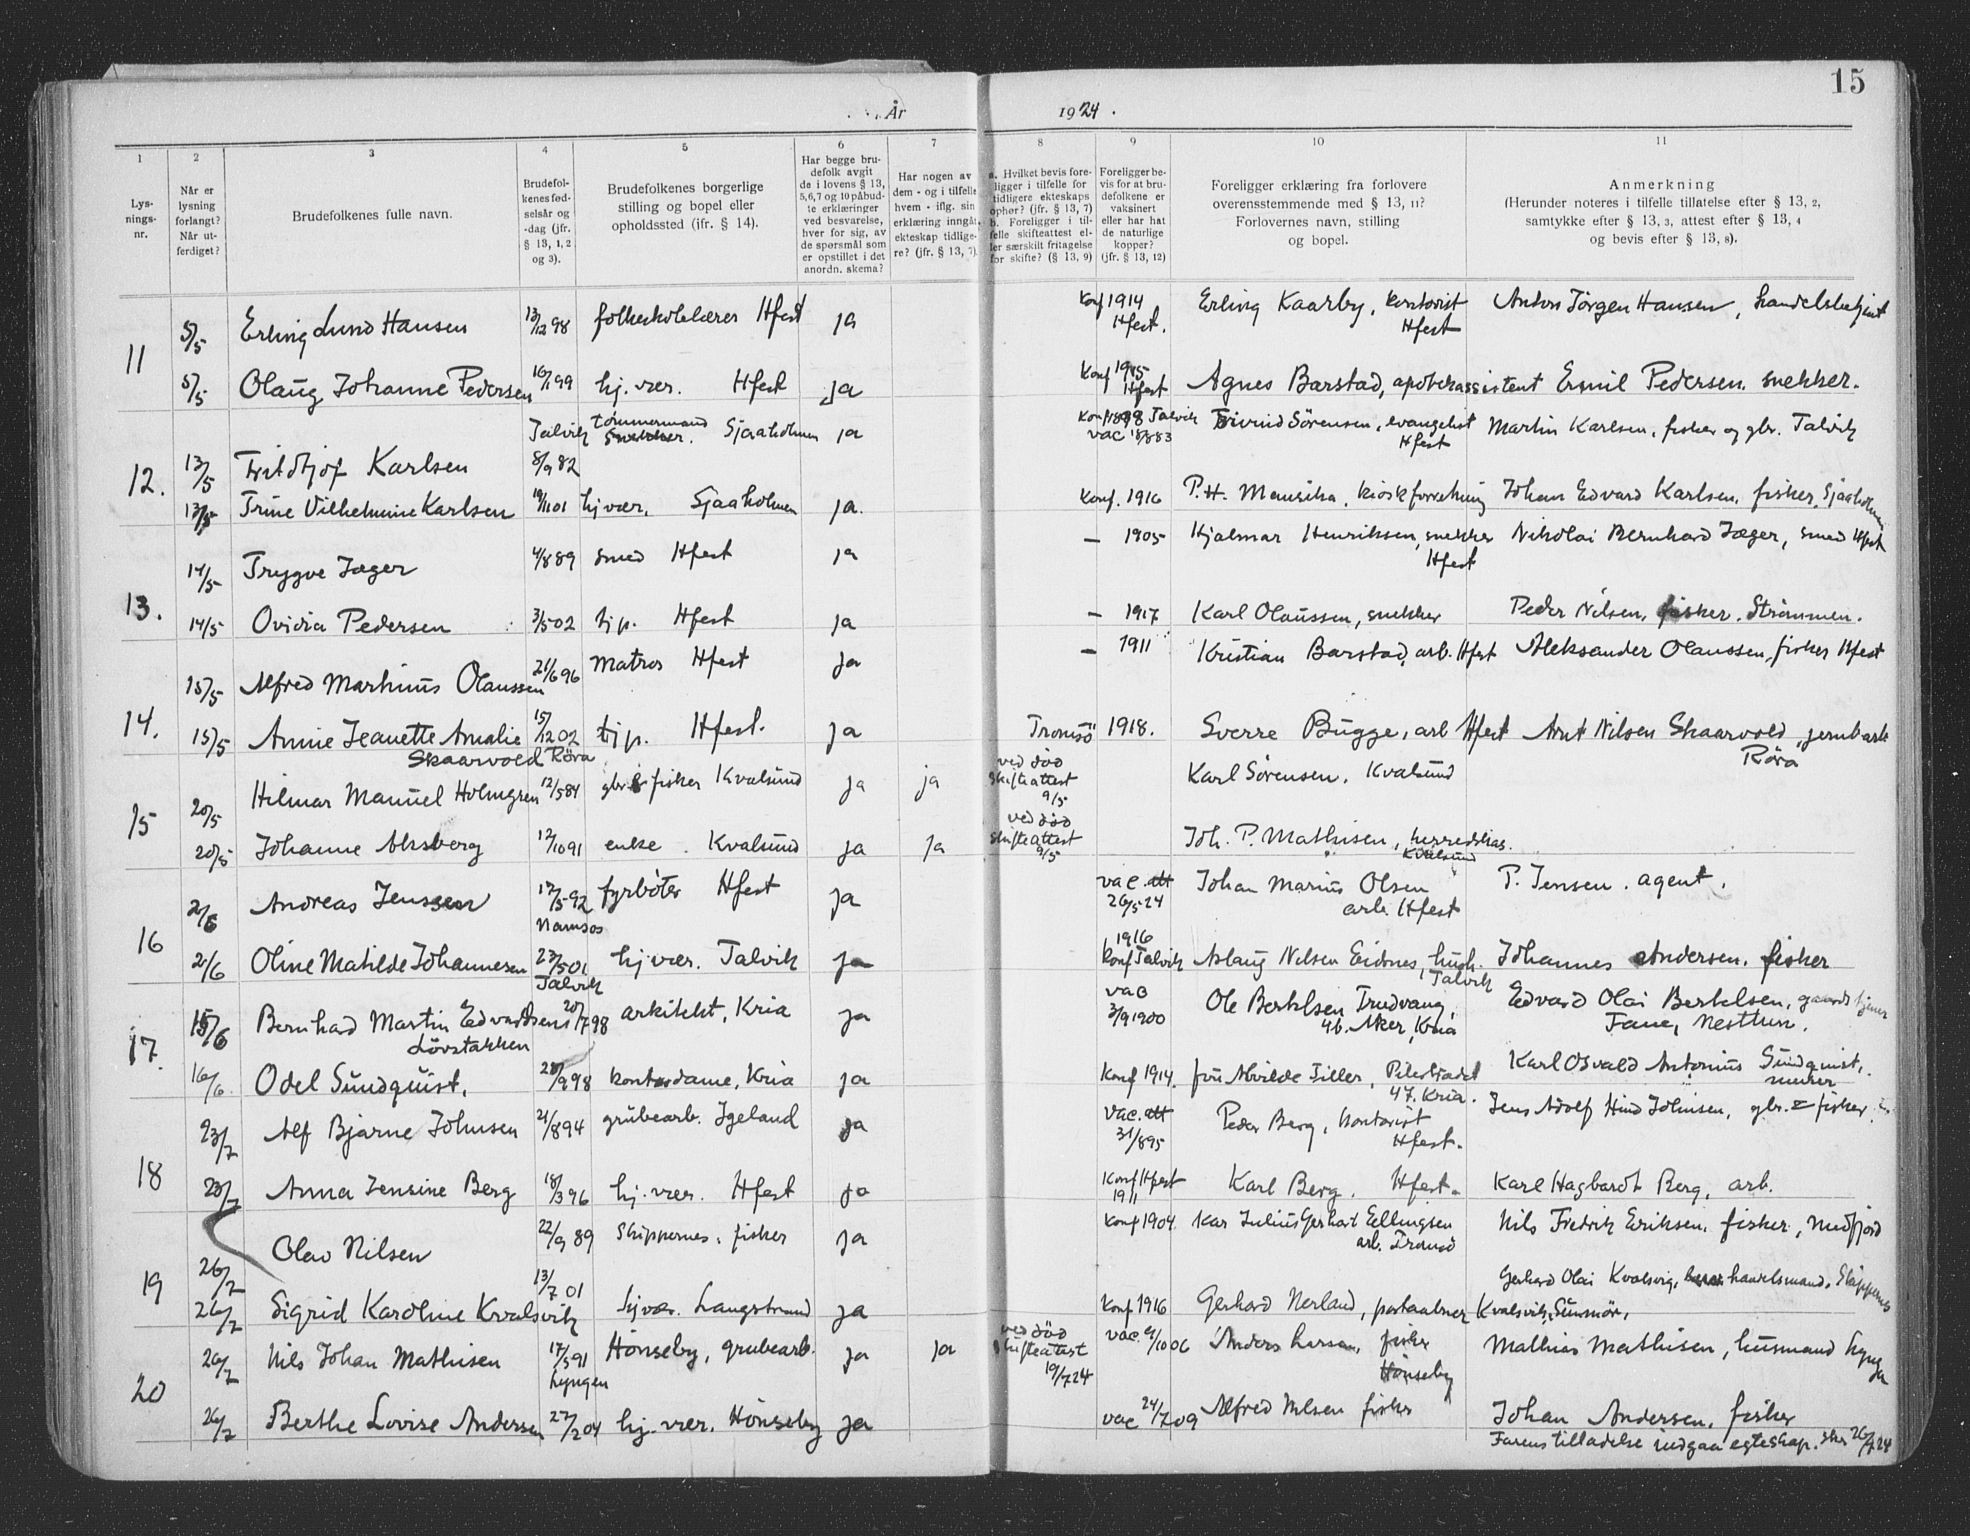 15
År 1924.
1 2 3 4 5 6 7 8 9 10 11
Lys-
nings-
nr.
Når er
lysning
forlangt?
Når ut-
ferdiget?
Brudefolkenes fulle navn.
Brudefol-
kenes fød-
selsår og
-dag (jfr.
§ 13, 1, 2
og 3).
Brudefolkenes borgerlige
stilling og bopel eller
opholdssted (ifr. § 14).
Har begge bru-
defolk avgit
de i lovens § 13,
5,6,7 og 10 påbud-
te erklæringer
ved besvarelse,
hver for sig, av
de spørsmål som
er opstillet i det
anordn. skema?
Har nogen av
dem - og i tilfelle
hvem - iflg. sin
erklæring inngåt
ekteskap tidlige-
re? (jfr. § 13, 7).
a. Hvilket bevis fore-
ligger i tilfelle for
tidligere ekteskaps
ophør? (jfr. § 13, 7)
b. Foreligger i til-
felle skifteattest el-
ler særskilt fritagelse
for skifte? (§ 13, 9)
Foreligger be-
vis for at bru-
defolkene er
vaksinert
eller har hat
de naturlige
kopper?
(jfr. § 13, 12)
Foreligger erklæring fra forlovere
overensstemmende med § 13, 11?
Forlovernes navn, stilling
og bopel.
Anmerkning
(Herunder noteres i tilfelle tillatelse efter § 13, 2,
samtykke efter § 13, 3, attest efter § 13, 4
og bevis efter § 13, 8).
11 5/5 Erling Lund Hansen 13/12 98 folkeskolelærer Hfest ja Konf 1914 Hfest. Erling Kaarby, kontorist Hfest Anton Jörgen Hansen, handelsbetjent
5/5 Olaug Johanne Pedersen 16/1 99 hj. vær. Hfest ja Konf 1915 Hfest Agnes Barstad, apotekassistent Emil Pedersen. snekker.
12. 13/5 Fritdtjof Karlsen Talvik 8/9 82 tömmermand Snekker. Sjaaholmen ja Konf 1898 Talvik vac 18/8 83 Eivind Sörensen, evangelist Hfest Martin Karlsen, fisker og gbr. Talvik
13/5 Trine Vilhelmine Karlsen 19/11 01 hj vær. Sjaaholmen ja. Konf. 1916 P. H. Mausika, kioskforretning Johan Edvard Karlsen, fisker, Sjaaholmen
13. 14/5 Trygve Jæger 4/8 89 smed Hfest ja — 1905 Hjalmar Henriksen, snekker Hfest Nikolai Bernhard Jæger, smed Hfest
14/5 Ovidia Pedersen 3/5 02 tjp. Hfest ja — 1917 Karl Olaussen, snekker Peder Nilsen, fisker. Strömmen.
14. 15/5 Alfred Martinius Olaussen 21/6 96 Matros Hfest ja — 1911 Kristian Barstad, arb. Hfest Aleksander Olaussen, fisker Hfest
15/5 Annie Jeanette Amalie Skaarvold 15/12 02 Röra tjp. Hfest. ja Tromsö 1918. Sverre Bugge, arb Hfest Arnt Nilsen Skaarvold, jernbarb Röra
15 20/5 Hilmar Manuel Holmgren 12/5 84 gbr & fisker Kvalsund ja ja ved död skifteattest 9/5 Karl Sörensen. Kvalsund
20/5 Johanne Aksberg 12/10 91 enke. Kvalsund ja ja ved död skifteattest 9/5 Joh. P. Mathisen, herredskas. Kvalsund
16 2/6 Andreas Jenssen 17/5 92 Namsos fyrböter Hfest ja vac. att 26/5 24 Johan Marius Olsen arb. Hfest P. Jensen. agent.
2/6 Oline Matilde Johannesen 23/5 01 Talvik hj vær. Talvik ja 1916 Konf Talvik Aslaug Nilsen Eidsnes, hush. Talvik Johannes Andersen. fisker
17. 15/6 Bernhard Martin Edvardsens Lövstakken 20/7 98 arkitekt, Kria ja vac 3/9 1900 Ole Bertelsen Trudvang, 4b. Aker, Kria Edvard Olai Bertelsen, gaardstjener Fane, Nesttun.
16/6 Odel Sundquist. 28/9 98 kontordame, Kria ja Konf 1914. fru Alvilde Tiller, Pilestrædet 47. Kria. Karl Osvald Antonius Sundquist, murer
18 23/7 Alf Bjarne Johnsen 21/8 94 grubearb. Igeland ja vac. att 31/8 95 Peder Berg, kontorist Hfest. Jens Adolf Hind Johnsen, gbr. & fisker
23/7 Anna Jensine Berg 18/3 96 hj. vær. Hfest ja Konf Hfest 1911 Karl Berg. Hfest. Karl Hagbardt Berg, arb.
19 26/7 Olav Nilsen 22/9 89 Skippernes, fisker ja Konf 1904. Kar Julius Gerhart Ellingsen arb. Tromsö Nils Fredrik Eriksen, fisker, Mefjord
26/7 Sigrid Karoline Kvalsvik 13/7 01 hj vær. Langstrand ja Konf 1916 Gerhard Nerland, postaabner Gerhard Olai Kvalsvig, handelsmand, Skippernes Kvalsvik, Sunmör.
20 26/7 Nils Johan Mathisen 17/5 91 Lyngen Hönseby, grubearb. ja ja ved död skifteattest 19/7 24 vac 9/10 06 Anders Larsen, fisker Hönseby Mathias Mathisen, husmand Lyngen
26/7 Berthe Lovise Andersen 27/2 04 hj. vær. Hönseby ja vac 24/7 09 Alfred Nilsen fisker Johan Andersen, fisker
Farens tilladelse indgaa egteskap. skr 26/7 24